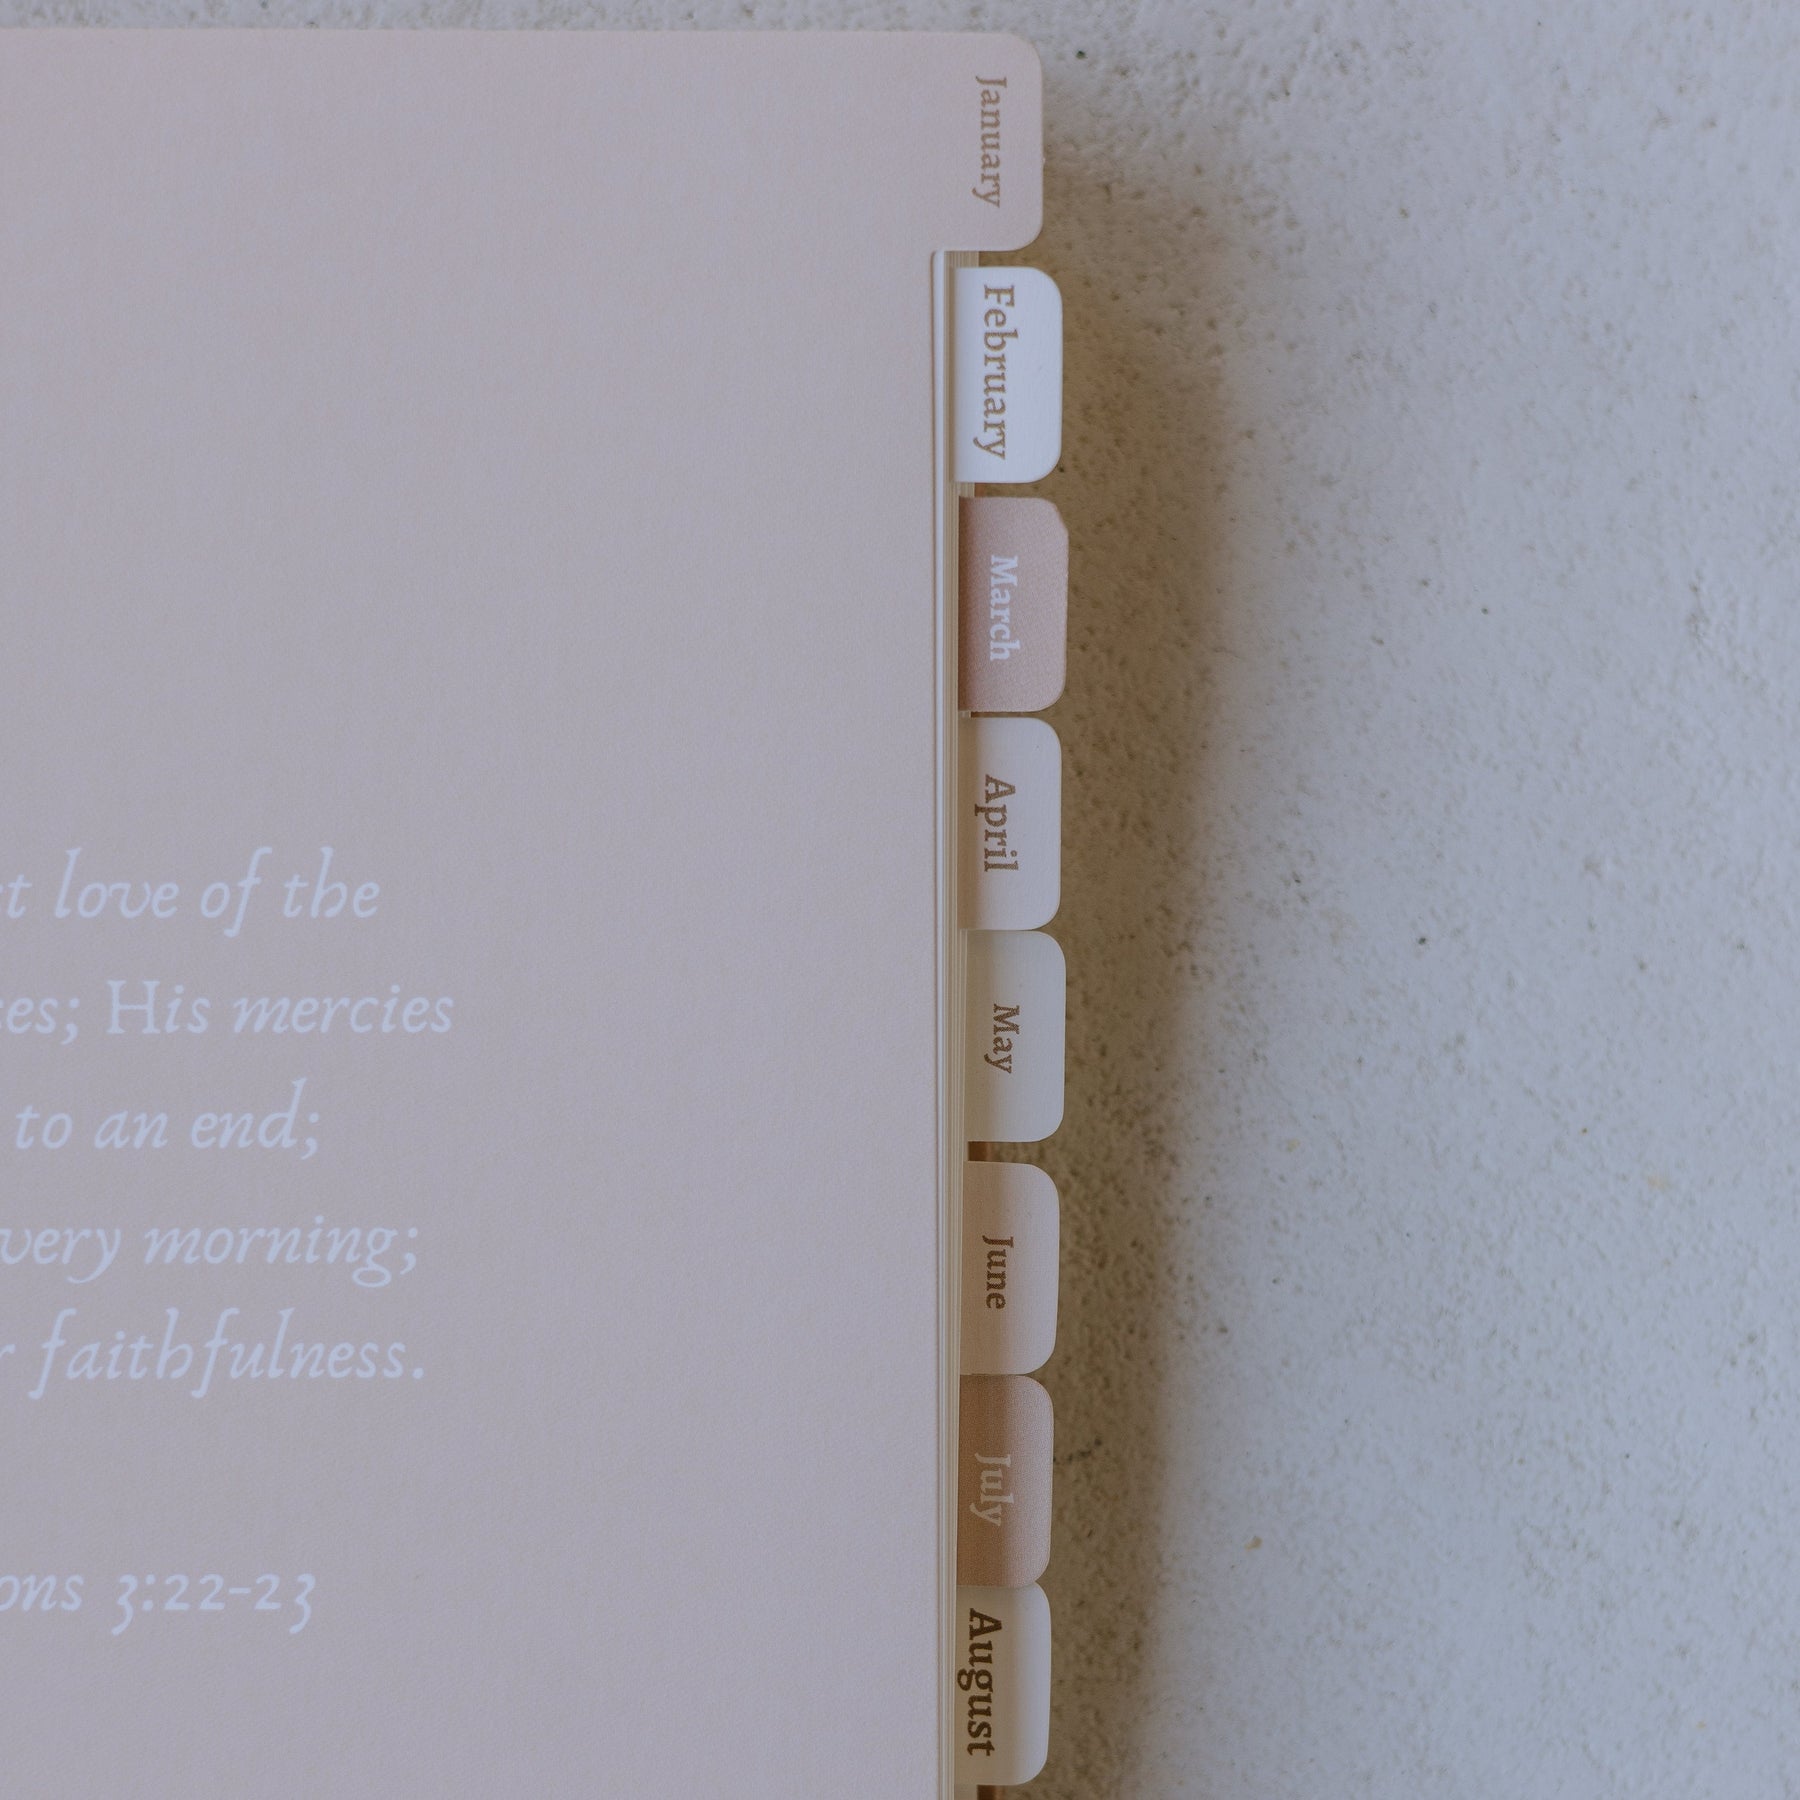 January
February
March
April
May
June
July
August
love of the
His mercies
to an end;
morning;
faithfulness.
3:22-23